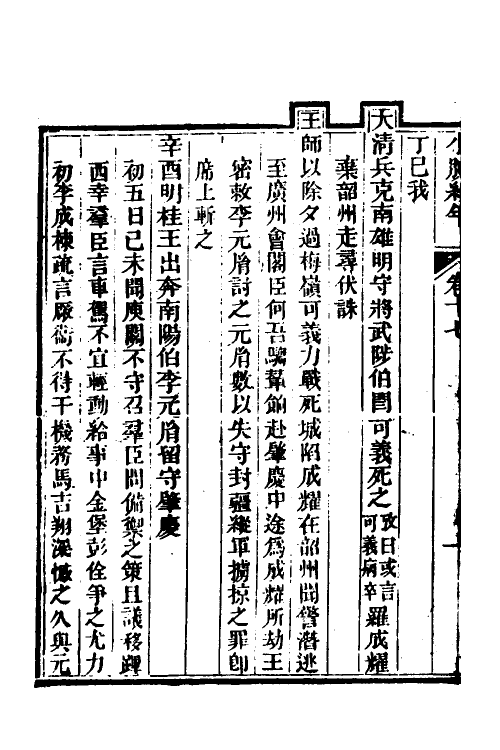 小腆紀年 卷十七
丁巳我
大清兵克南雄明守將武陟伯閻可義死之攷曰或言可義病卒羅成耀
棄韶州走尋伏誅
王師以除夕過梅嶺可義力戰死城陷成耀在韶州聞警潛逃
至廣州會閣臣何吾騶輦餉赴肇慶中途爲成耀所劫王
密敕李元胤討之元胤數以失守封疆縱軍擄掠之罪卽
席上斬之
辛酉明桂王出奔南陽伯李元胤留守肇慶
初五日己未聞庾關不守召羣臣問備禦之策且議移蹕
西幸羣臣言車駕不宜輕動給事中金堡彭佺爭之尤力
初李成棟疏言廠衛不得干機務馬吉翔深憾之久與元